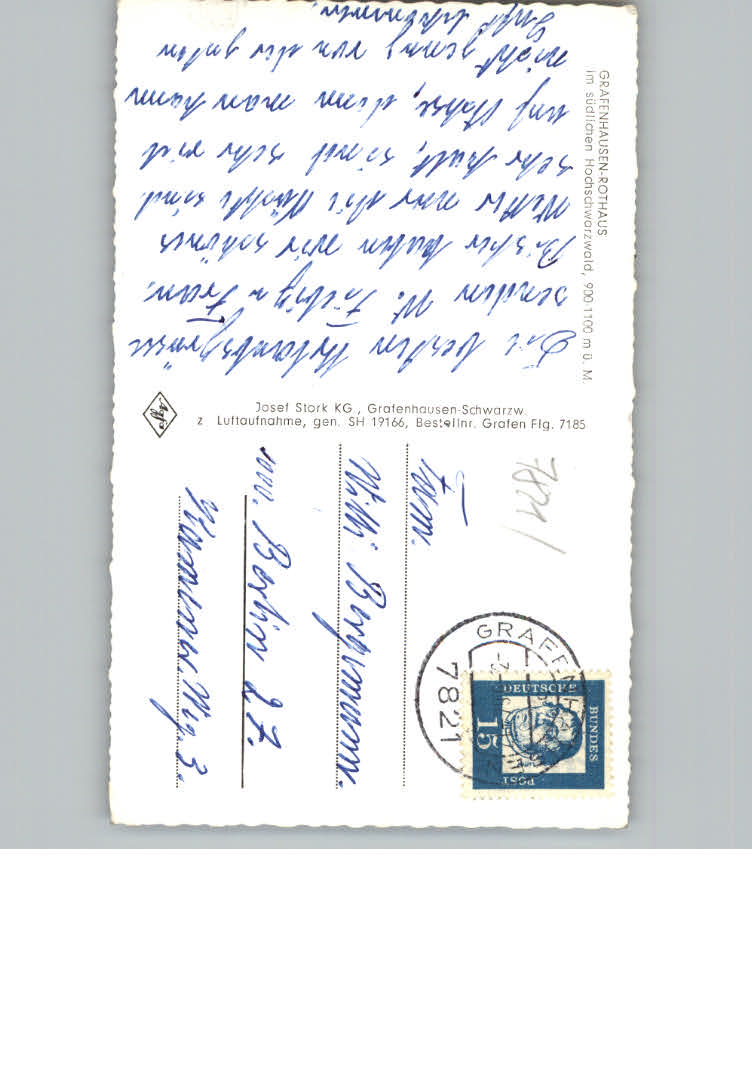 GRAFENHAUSEN-ROTHAUS
im südlichen Hochschwarzwald, 900-1100 m ü. M.
Die besten Urlaubsgrüsse
senden W. Fiebig u. Frau.
Bisher haben wir schönes
Wetter nur die Nächte sind
sehr kalt, sind sehr viel
auf Achse, denn man kann
nicht genug von der guten
Luft schnappen.
Agfa
Josef Stork KG., Grafenhausen-Schwarzw.
z Luftaufnahme, gen. SH 19166, Bestellnr. Grafen Flg. 7185
7821
GRAFENH
7821
DEUTSCHE
BUNDES
POST
15
Fam.
Willi Bergmann.
1000. Berlin 27.
Weg 3.